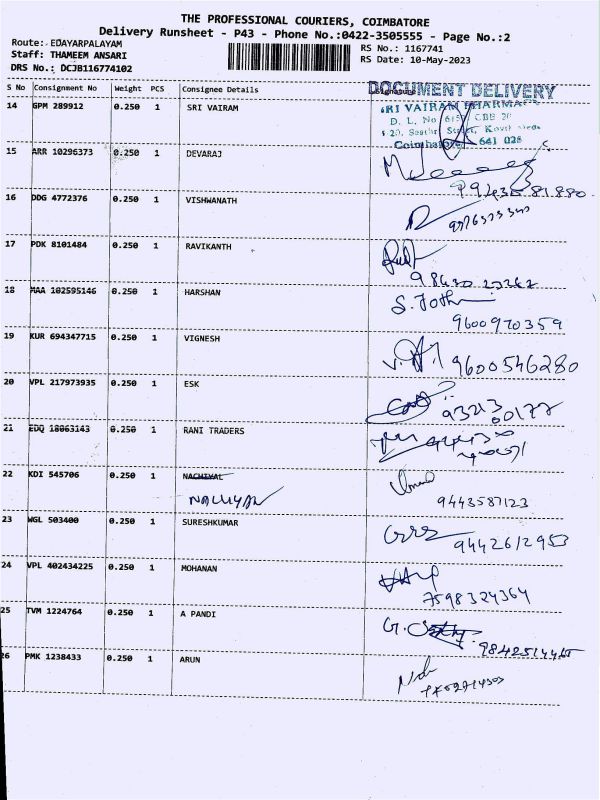 THE PROFESSIONAL COURIERS, COIMBATORE
Delivery Runsheet - P43 - Phone No.:0422-3505555 - Page No.:2
Route: EDAYARPALAYAM
Staff: THAMEEM ANSARI
DRS No.: DCJB116774102
RS No.: 1167741
RS Date: 10-May-2023
S No Consignment No Weight PCS Consignee Details
DOCUMENT DELIVERY
14 GPM 289912 0.250 1 SRI VAIRAM
SRI VAIRAM PHARMACY
D. L. No CBB 20
Coimbatore 641 025
15 ARR 10296373 0.250 1 DEVARAJ
16 DDG 4772376 0.250 1 VISHWANATH
17 PDK 8101484 0.250 1 RAVIKANTH
18 MAA 102595146 0.250 1 HARSHAN
9600970359
19 KUR 694347715 0.250 1 VIGNESH
9600546280
20 VPL 217973935 0.250 1 ESK
93213
00177
21 EDQ 18063143 0.250 1 RANI TRADERS
22 KDI 545706 0.250 1 NACHIYAL
9443587123
23 WGL 503400 0.250 1 SURESHKUMAR
9442612953
24 VPL 402434225 0.250 1 MOHANAN
7598324364
25 TVM 1224764 0.250 1 A PANDI
26 PMK 1238433 0.250 1 ARUN